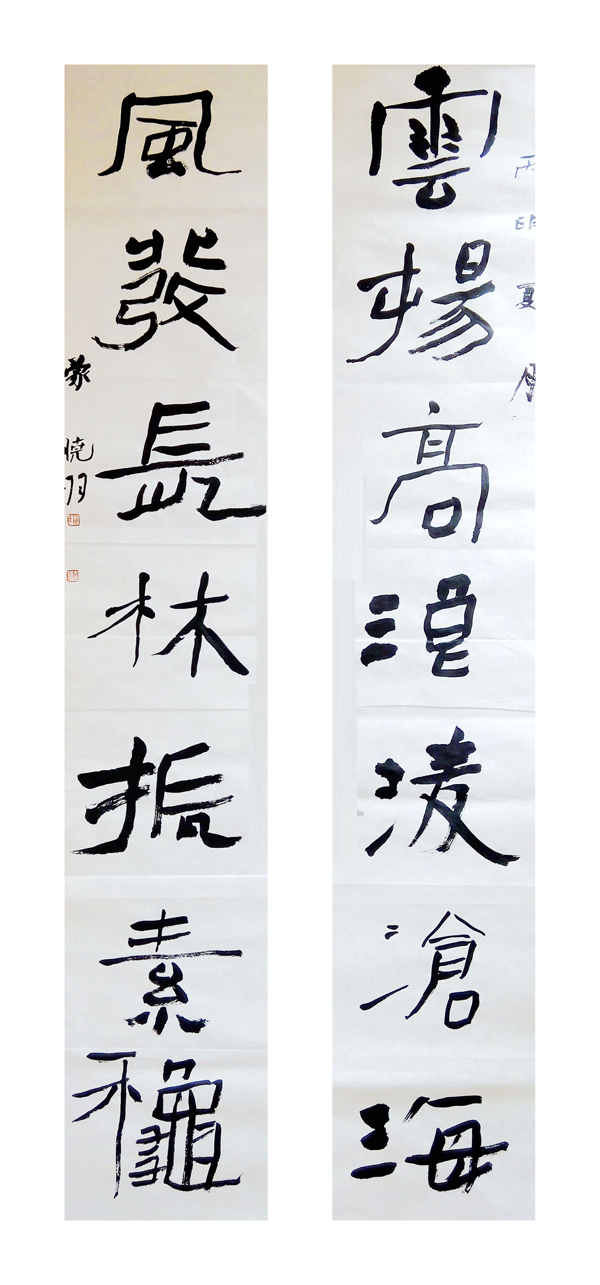 雲揚高浪淩滄海
丙申夏月
風發長林振素龝